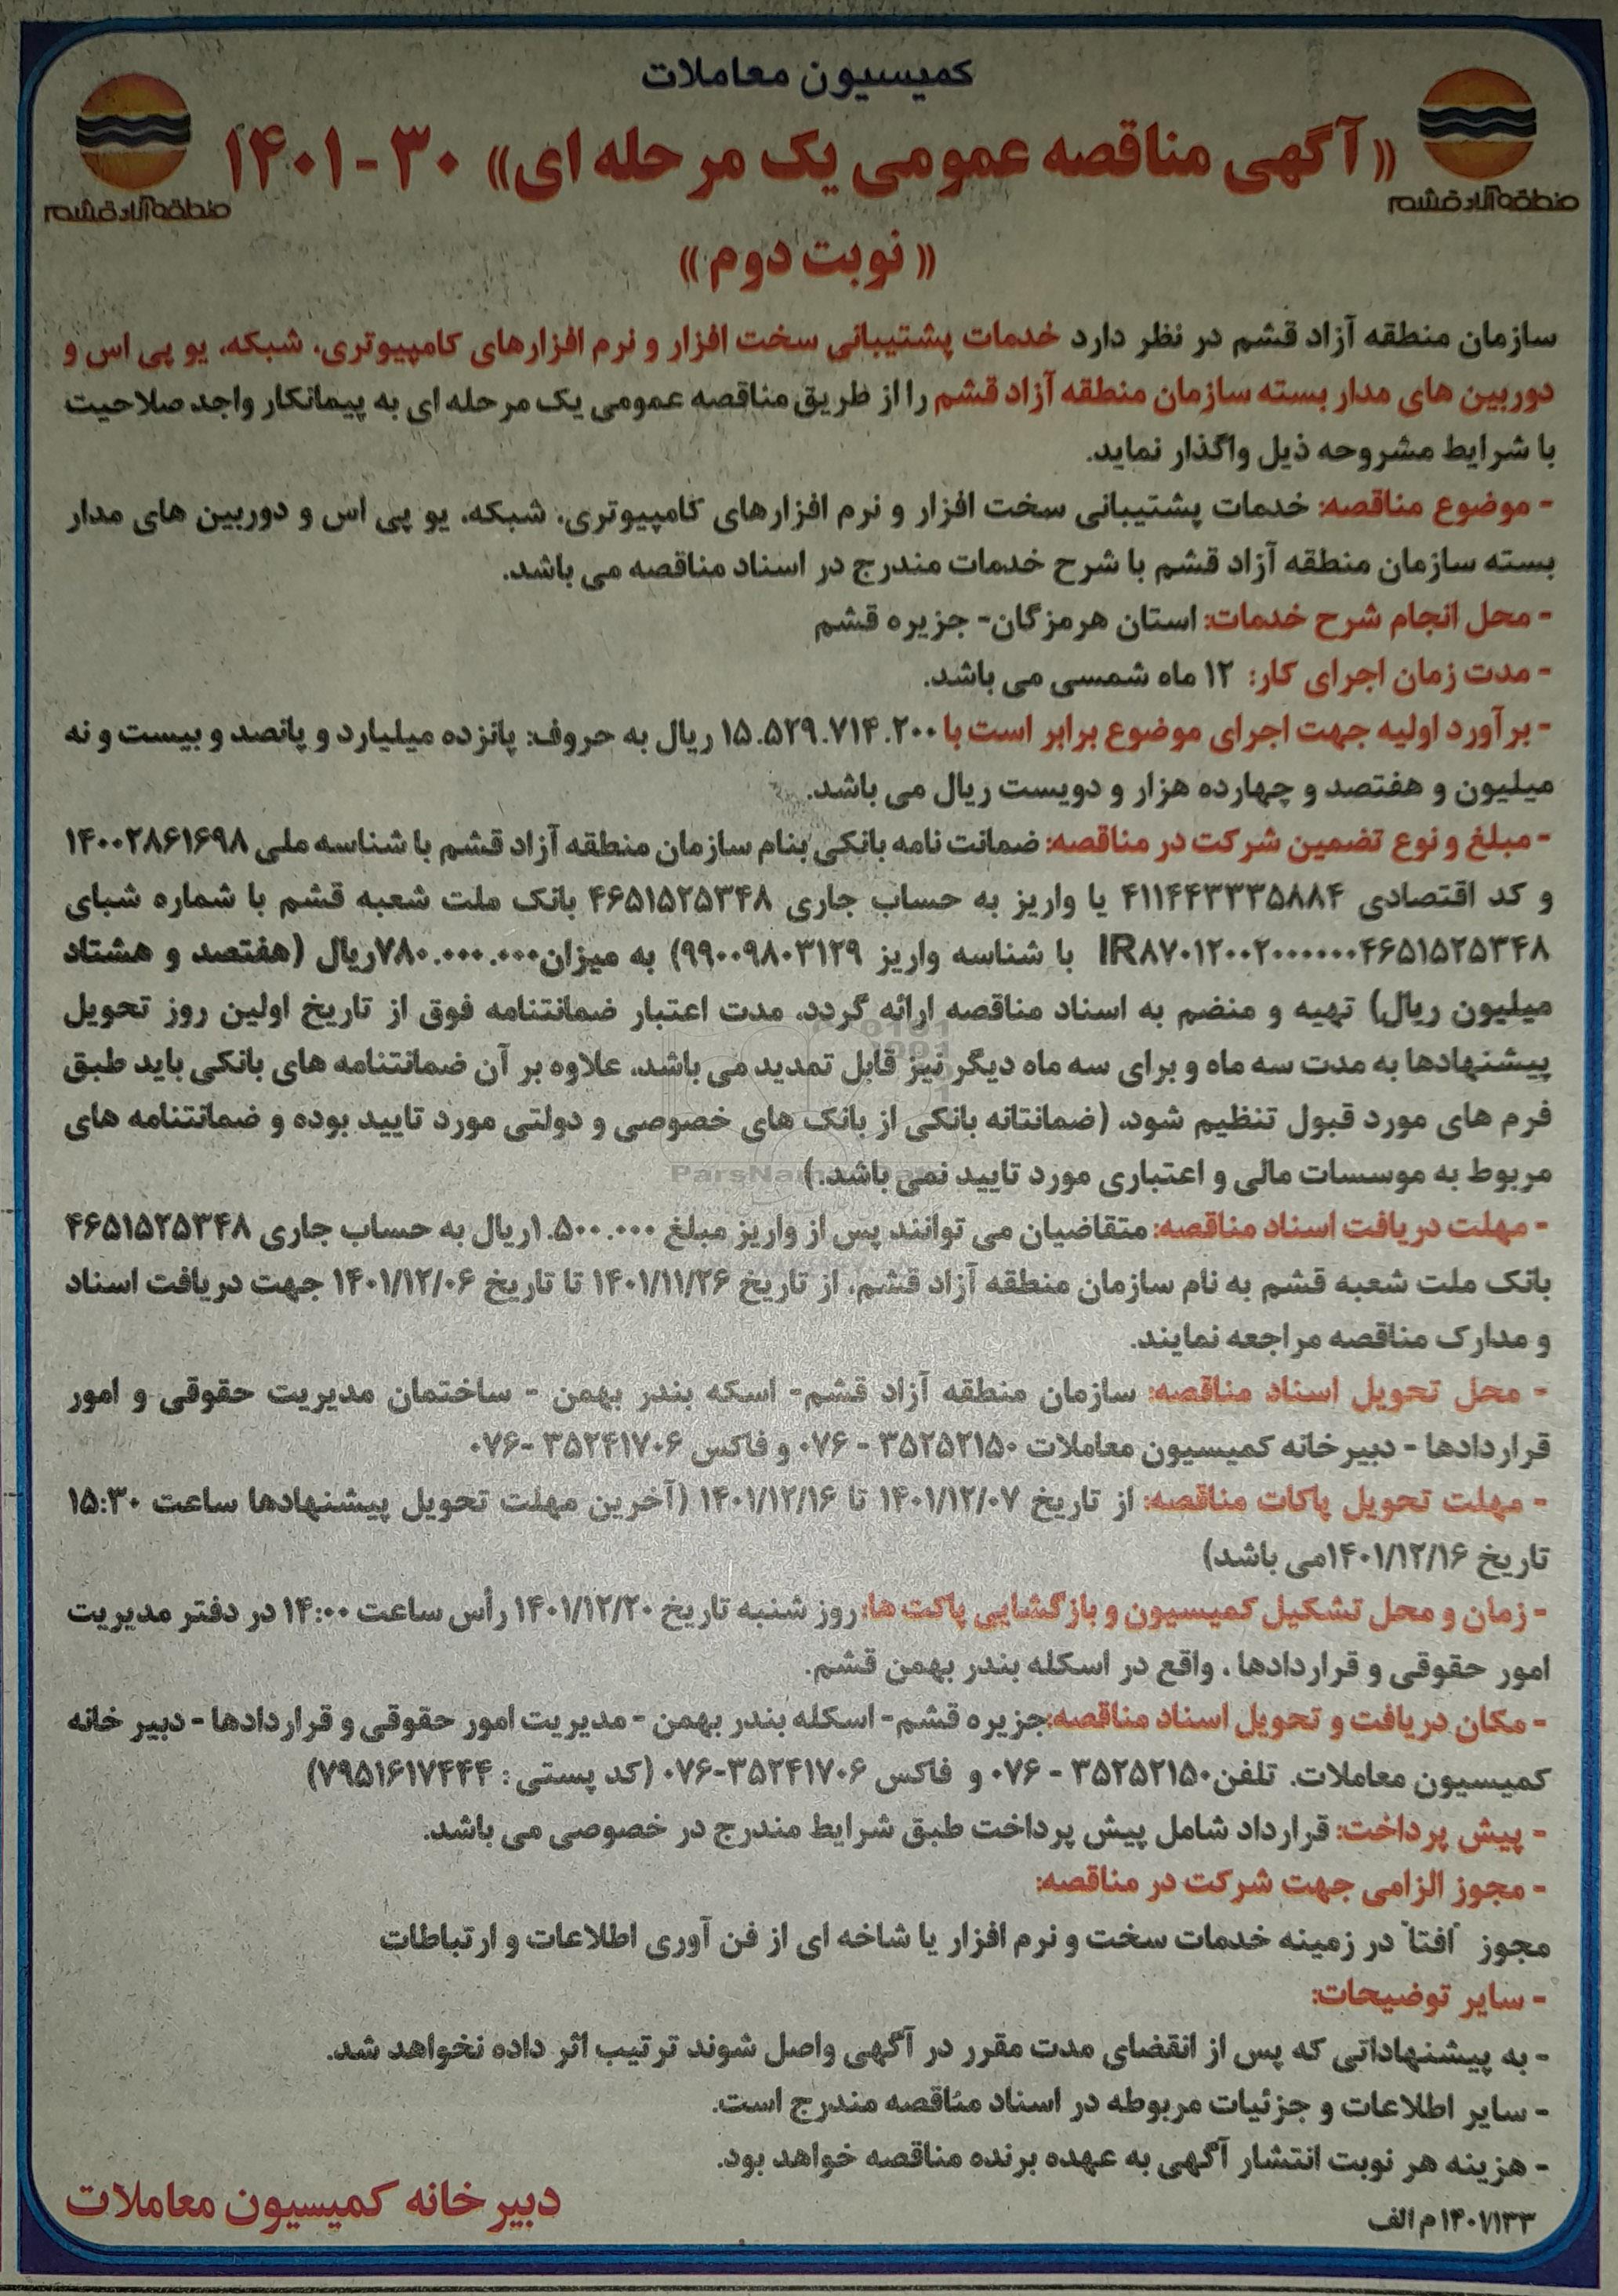 کمیسیون معاملات
« آگهی مناقصه عمومی یک مرحله ای» ۳۰ - ۱۴۰۱
منطقه آزاد قشم
منطقه آزاد قشم
« نوبت دوم »
سازمان منطقه آزاد قشم در نظر دارد خدمات پشتیبانی سخت افزار و نرم افزارهای کامپیوتری، شبکه، یو پی اس و
دوربین های مدار بسته سازمان منطقه آزاد قشم را از طریق مناقصه عمومی یک مرحله ای به پیمانکار واجد صلاحیت
با شرایط مشروحه ذیل واگذار نماید.
- موضوع مناقصه: خدمات پشتیبانی سخت افزار و نرم افزارهای کامپیوتری، شبکه، یو پی اس و دوربین های مدار
بسته سازمان منطقه آزاد قشم با شرح خدمات مندرج در اسناد مناقصه می باشد.
- محل انجام شرح خدمات: استان هرمزگان- جزیره قشم
- مدت زمان اجرای کار: ۱۲ ماه شمسی می باشد.
- برآورد اولیه جهت اجرای موضوع برابر است با ۱۵.۵۲۹.۷۱۴.۲۰۰ ریال به حروف: پانزده میلیارد و پانصد و بیست و نه
میلیون و هفتصد و چهارده هزار و دویست ریال می باشد.
- مبلغ و نوع تضمین شرکت در مناقصه: ضمانت نامه بانکی بنام سازمان منطقه آزاد قشم با شناسه ملی ۱۴۰۰۲۸۶۱۶۹۸
و کد اقتصادی ۴۱۱۴۴۳۳۳۵۸۸۴ یا واریز به حساب جاری ۴۶۵۱۵۲۵۳۴۸ بانک ملت شعبه قشم با شماره شبای
IR۸۷۰۱۲۰۰۲۰۰۰۰۰۰۴۶۵۱۵۲۵۳۴۸ با شناسه واریز ۹۹۰۰۹۸۰۳۱۲۹) به میزان۷۸۰.۰۰۰.۰۰۰ریال (هفتصد و هشتاد
میلیون ریال) تهیه و منضم به اسناد مناقصه ارائه گردد، مدت اعتبار ضمانتنامه فوق از تاریخ اولین روز تحویل
پیشنهادها به مدت سه ماه و برای سه ماه دیگر نیز قابل تمدید می باشد، علاوه بر آن ضمانتنامه های بانکی باید طبق
فرم های مورد قبول تنظیم شود، (ضمانتانه بانکی از بانک های خصوصی و دولتی مورد تایید بوده و ضمانتنامه های
مربوط به موسسات مالی و اعتباری مورد تایید نمی باشد.)
- مهلت دریافت اسناد مناقصه: متقاضیان می توانند پس از واریز مبلغ ۱.۵۰۰.۰۰۰ریال به حساب جاری ۴۶۵۱۵۲۵۳۴۸
بانک ملت شعبه قشم به نام سازمان منطقه آزاد قشم، از تاریخ ۱۴۰۱/۱۱/۲۶ تا تاریخ ۱۴۰۱/۱۲/۰۶ جهت دریافت اسناد
و مدارک مناقصه مراجعه نمایند.
- محل تحویل اسناد مناقصه: سازمان منطقه آزاد قشم- اسکه بندر بهمن - ساختمان مدیریت حقوقی و امور
قراردادها - دبیرخانه کمیسیون معاملات ۳۵۲۵۲۱۵۰ - ۰۷۶ و فاکس ۳۵۲۴۱۷۰۶ -۰۷۶
- مهلت تحویل پاکات مناقصه: از تاریخ ۱۴۰۱/۱۲/۰۷ تا ۱۴۰۱/۱۲/۱۶ (آخرین مهلت تحویل پیشنهادها ساعت ۱۵:۳۰
تاریخ ۱۴۰۱/۱۲/۱۶می باشد)
- زمان و محل تشکیل کمیسیون و بازگشایی پاکت ها: روز شنبه تاریخ ۱۴۰۱/۱۲/۲۰ رأس ساعت ۱۴:۰۰ در دفتر مدیریت
امور حقوقی و قراردادها ، واقع در اسکله بندر بهمن قشم.
- مکان دریافت و تحویل اسناد مناقصه:جزیره قشم- اسکله بندر بهمن - مدیریت امور حقوقی و قراردادها - دبیر خانه
کمیسیون معاملات. تلفن۳۵۲۵۲۱۵۰ - ۰۷۶ و فاکس ۳۵۲۴۱۷۰۶-۰۷۶ (کد پستی : ۷۹۵۱۶۱۷۴۴۴)
- پیش پرداخت: قرارداد شامل پیش پرداخت طبق شرایط مندرج در خصوصی می باشد.
- مجوز الزامی جهت شرکت در مناقصه:
مجوز "افتا" در زمینه خدمات سخت و نرم افزار یا شاخه ای از فن آوری اطلاعات و ارتباطات
- سایر توضیحات:
- به پیشنهاداتی که پس از انقضای مدت مقرر در آگهی واصل شوند ترتیب اثر داده نخواهد شد.
- سایر اطلاعات و جزئیات مربوطه در اسناد مناقصه مندرج است.
- هزینه هر نوبت انتشار آگهی به عهده برنده مناقصه خواهد بود.
۱۴۰۱/۱۳۳ م الف
دبیرخانه کمیسیون معاملات